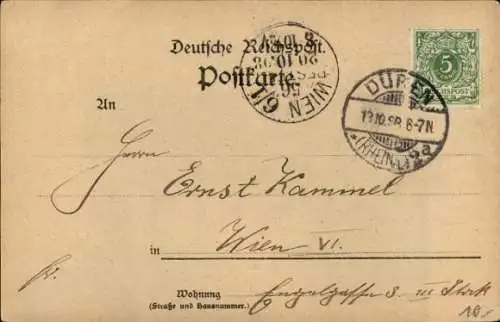 Deutsche Reichspost.
Postkarte
5
WIEN
6/1
DÜREN
13.10.98.6-7N.
*(RHEINL.)2a
An
Herrn
Ernst Kammel
in Wien VI.
Wohnung
(Straße und Hausnummer.)
Engelgasse 3 III Stock
10.